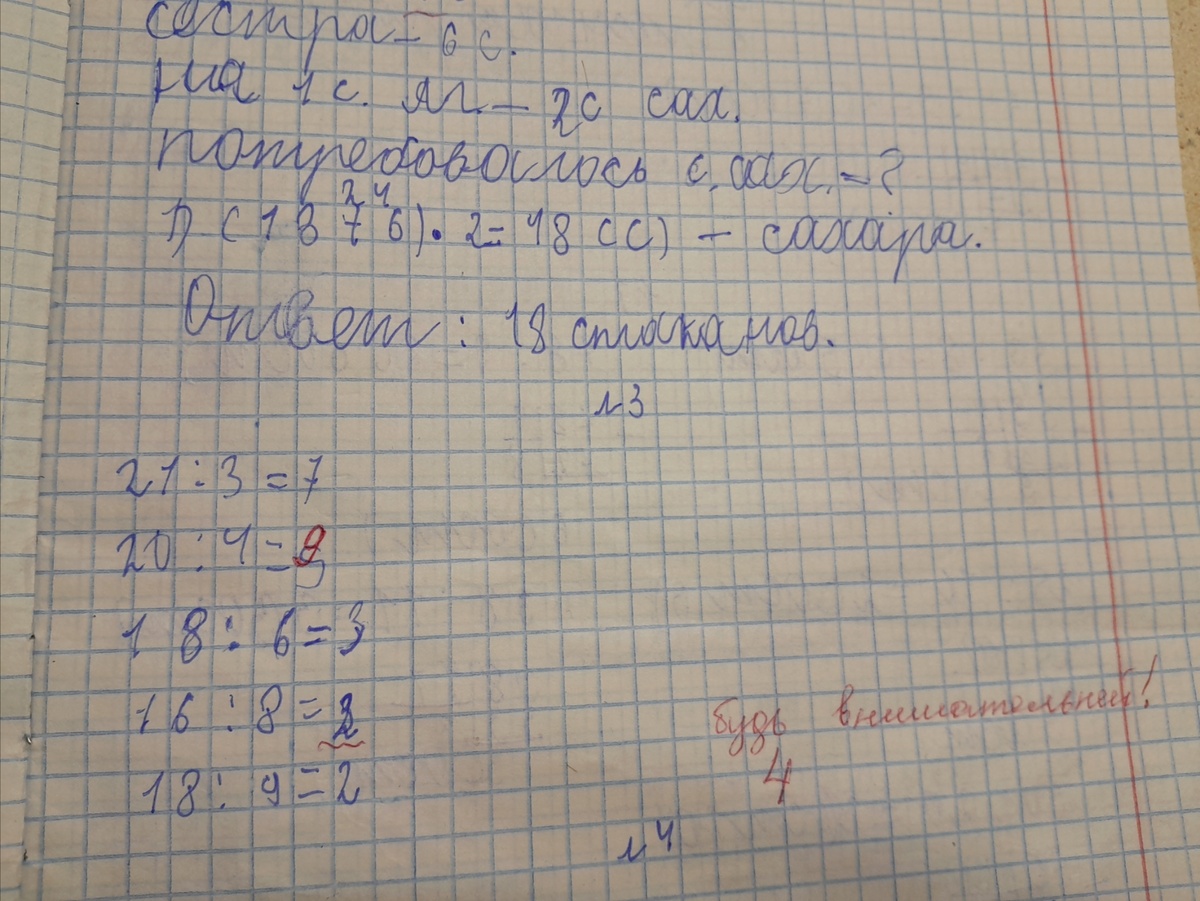 сестра – 6 с.
на 1 с. яг. – 2 с сах.
потребовалось с. сах. – ?
2 4
1) (1 3 7 6) · 2 = 18 (с) – сахара.
Ответ: 18 стаканов.
№3
21 : 3 = 7
20 : 4 =
18 : 6 = 3
16 : 8 = 2
будь внимательней!
18 : 9 = 2
4
№4